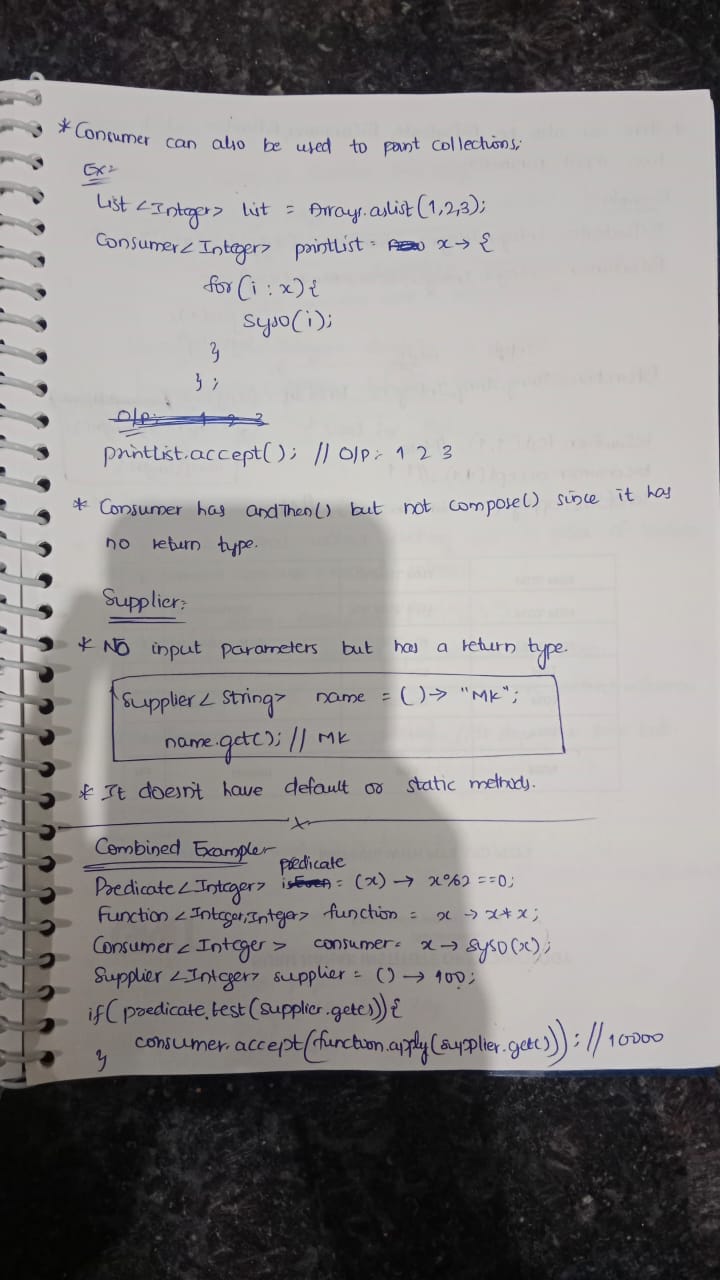 * Consumer can also be used to print collections:
Ex:
List <Integer> list = Arrays.aslist(1,2,3);
Consumer<Integer> printlist = x → {
for(i : x){
syso(i);
}
};
O/P: 1 2 3
printlist.accept(); // O/P: 1 2 3
* Consumer has andThen() but not compose() since it has
no return type.
Supplier:
* No input parameters but has a return type.
Supplier< String> name = () → "MK";
name.get(); // MK
* It doesn't have default or static methods.
x
Combined Example:
predicate
Predicate<Integer> isEven = (x) → x%2 ==0;
Function <Integer,Integer> function = x → x*x;
Consumer< Integer > consumer = x → syso(x);
Supplier <Integer> supplier = () → 100;
if(predicate.test(supplier.get()){
consumer.accept(function.apply(supplier.get())); // 10000
}